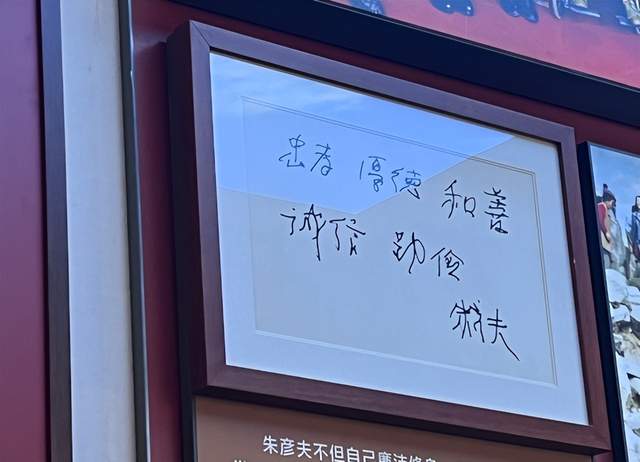 忠孝 厚德 和善
诚信 勤俭
彦夫
朱彦夫不但自己廉洁修身